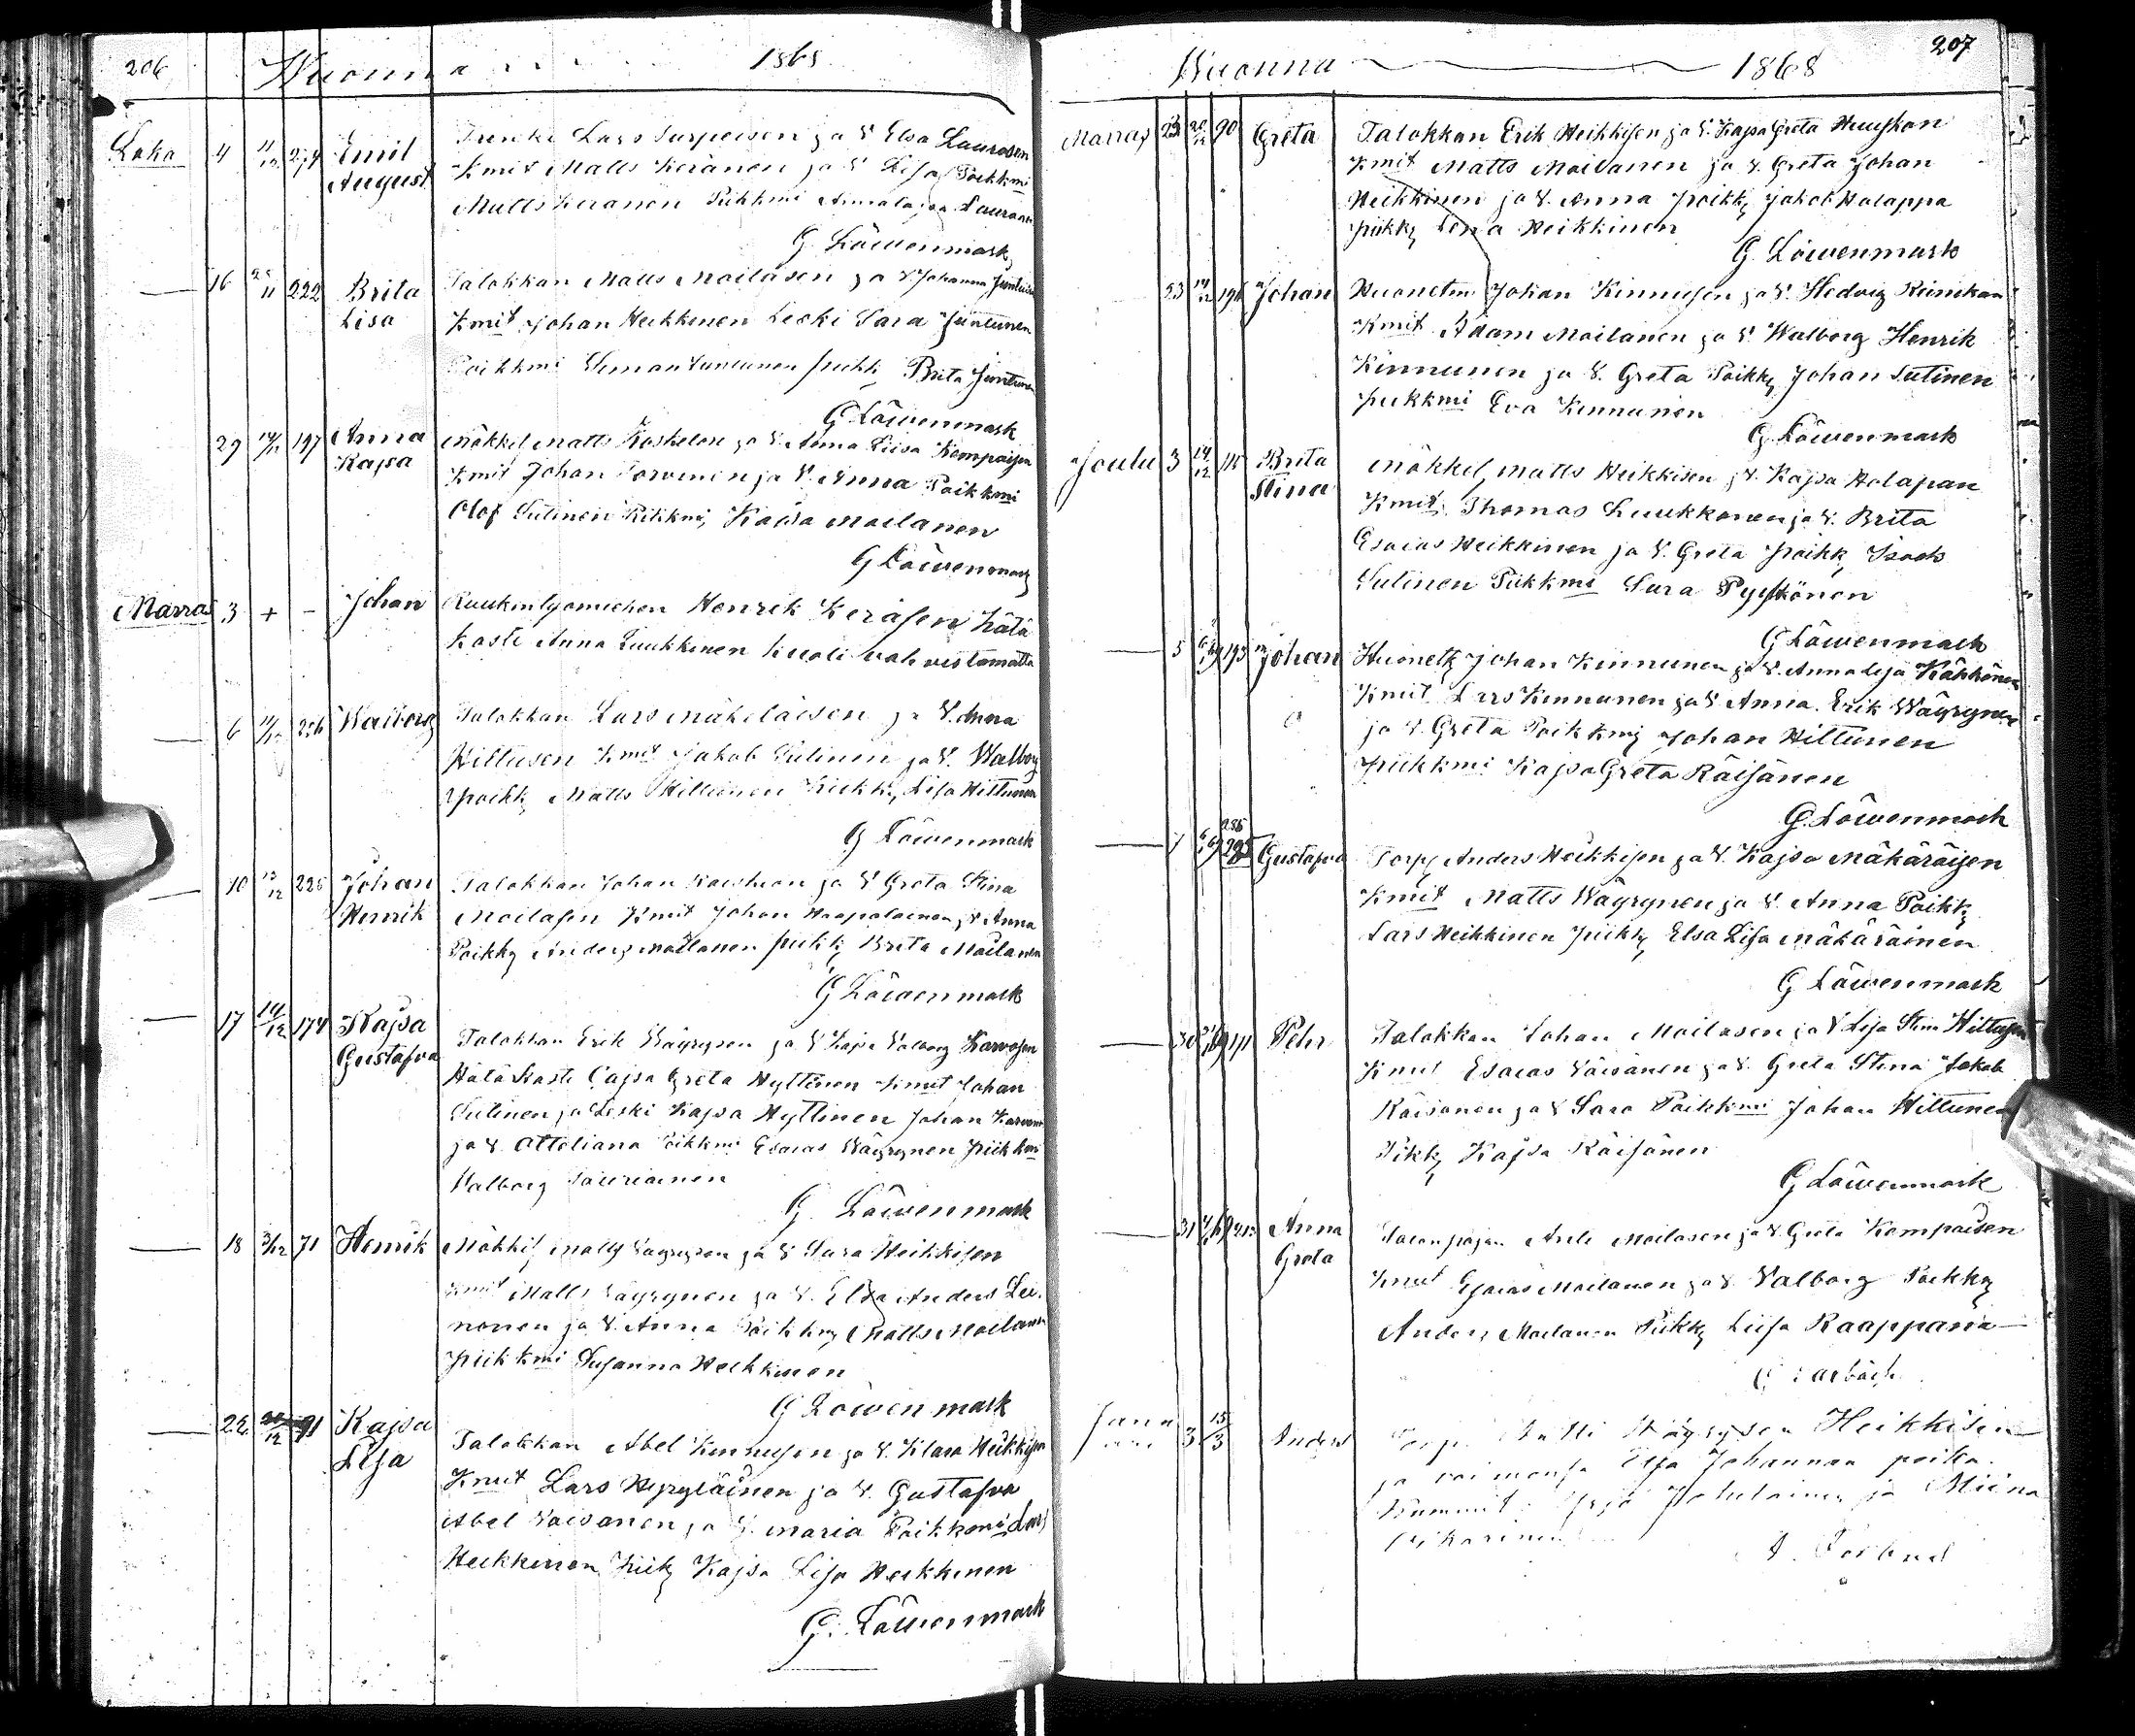 206 Wuonna 1868
Loka 4 11/10 274 Emil August Trenki Lars Turpeisen ja V Elsa Laurosen
Kmit Matts Keränen ja V Lisa Poikkmi
Matts Keranen Piikkmi Annakajsa
G. Löwenmark
16 25/11 222 Brita Lisa Talokkan Matts Moilasen ja V Johanna
Kmit Johan Heikkinen Leski Sara Juntunen
Poikkmi Simon Juntunen piikk Brita Juntunen
G Löwenmark
29 197 Anna Kajsa Mökkel Matts Koskelon ja V. Anna Liisa Kompaisen
Kmit Johan Torvinen ja V. Anna Poikkmi
Olof Sutinen Piikkmi Kajsa Moilanen
G Löwenmark
Marras 3 + - Johan Ruukintyömiehen Henrik Keräsen hätä
kaste Anna Luukkinen kuoli vahvistamatta
6 256 Walborg Talokkan Lars Mäkeläisen ja V. Anna
Hiltusen Kmit Jakob Sutinen ja V. Walborg
poikk Matts Hiltunen Piikk Lisa Hiltunen
G Löwenmark
10 13/12 225 Johan Henrik Talokkan Johan ja V Greta Stina
Moilasen Kmit Johan Haapalainen ja V Anna
Poikk Anders Moilanen piikk Brita Moilanen
G Löwenmark
17 14/12 174 Kajsa Gustafva Talokkan Erik Wäyrysen ja V Kajsa Valborg Karvosen
Hätä Kaste Cajsa Greta Hyttinen Kmit Johan
Sutinen ja Leski Kajsa Hyttinen Johan Karvonen
ja V. Otteliana Poikkmi Esaias Wäyrynen piikkmi
Valborg
G. Löwenmark
18 3/12 71 Henrik Mökkil Matts Väyrysen ja V Sara Heikkisen
Kmit Matts Väyrynen ja V. Elsa Anders Lei-
nonen ja V. Anna Poikkmi Matts Moilanen
piikkmi Susanna Heikkinen
G Löwenmark
22 20/12 91 Kajsa Lisa Talokkan Abel Kinnusen ja V. Klara Heikkisen
Kmit Lars Hyryläinen ja V. Gustafva
Abel Väisänen ja V. Maria Poikkmi Lars
Heikkinen Piik Kajsa Lisa Heikkinen
G. Löwenmark
207
Wuonna 1868
Marras 23 20/12 90 Greta Talokkan Erik Heikkisen ja V. Kajsa Greta Huuskon
Kmit Matts Moilanen ja V. Greta Johan
Heikkinen ja V. Anna poikk Jakob Halappa
piikk Lena Heikkinen
G. Löwenmark
23 Johan Huonetm Johan Kinnusen ja V. Hedvig
Kmit Adam Moilanen ja V. Walborg Henrik
Kinnunen ja V. Greta Poikk Johan Sutinen
piikkmi Eva Kinnunen
G. Löwenmark
Joulu 3 14/12 115 Brita Stina Mökkel Matts Heikkisen j V. Kajsa Halapan
Kmit Thomas Luukkonen ja V. Brita
Esaias Heikkinen ja V. Greta poikk Isack
Sutinen Piikkmi Sara Pyykkönen
G Löwenmark
5 193 Johan Huonetk Johan Kinnunen ja V. Anna Lisa Kähkönen
Kmit Lars Kinnunen ja V Anna. Erik Wäyrynen
ja V. Greta Poikkmi Johan Hiltunen
piikkmi Kajsa Greta Räisänen
G. Löwenmark
7 Gustafva Torp Anders Heikkisen ja V. Kajsa Mäkäräisen
Kmit Matts Wäyrynen ja V. Anna Poikk
Lars Heikkinen piikk Elsa Lisa Mäkäräinen
G Löwenmark
30 Pehr Talokkan Johan Moilasen ja V Lisa Stina Hiltusen
Kmit Esaias Väisänen ja V. Greta Stina Jakob
Räisänen ja V Sara Poikkmi Johan Hiltunen
Piikk Kajsa Räisänen
G Löwenmark
31 Anna Greta Moilasen ja V. Greta Kompaisen
Kmit Esaias Moilanen ja V. Valborg Poikk
Anders Moilanen Piikk Liisa Raappana
3 15/3 Anders Torp. Antti Väyrysen Heikkisen
ja vaimonsa Elsa Johannan poika.
Kummit: ja Miina